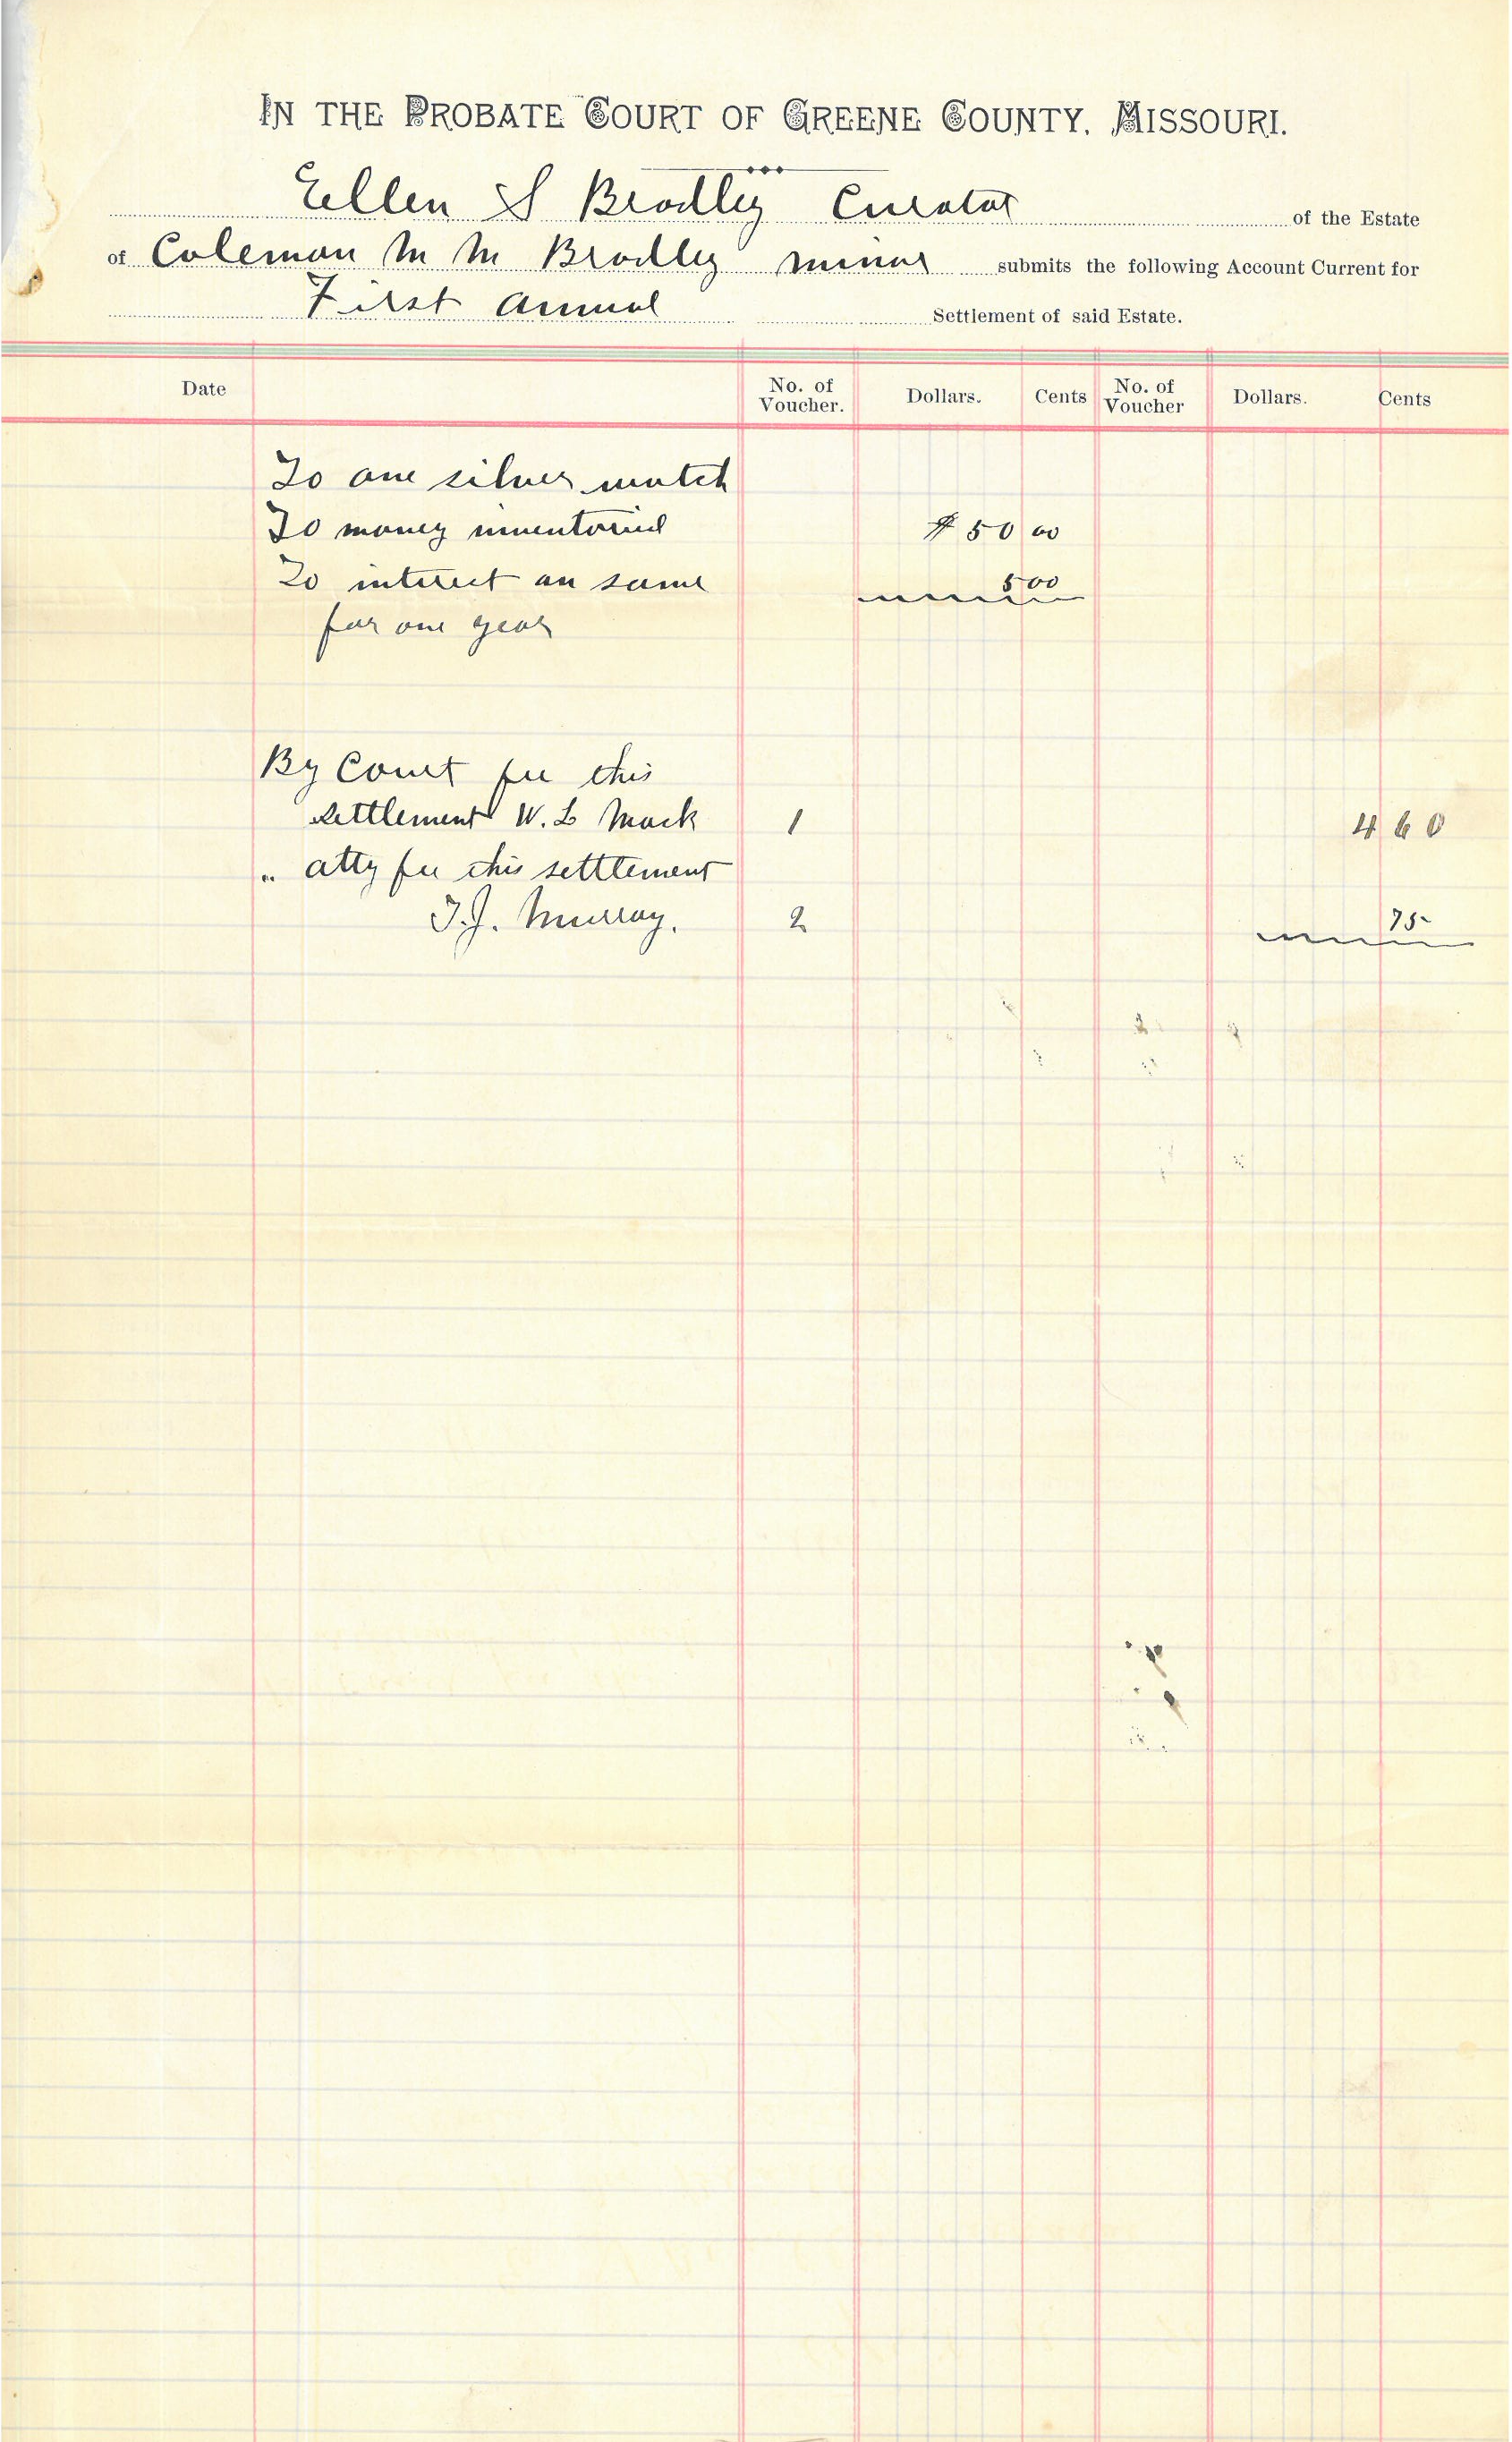 IN THE PROBATE COURT OF GREENE COUNTY, MISSOURI.
Ellen S Bradley Curator of the Estate
of Coleman M M Bradley minor submits the following Account Current for
First Annual Settlement of said Estate.
Date No. of Voucher. Dollars. Cents No. of Voucher Dollars. Cents
To one silver watch
To money inventoried $50 00
To interest on same 5 00
for one year
By Court fee this
settlement W. L Mack 1 4 60
" atty fee this settlement
T.J. Murray. 2 75